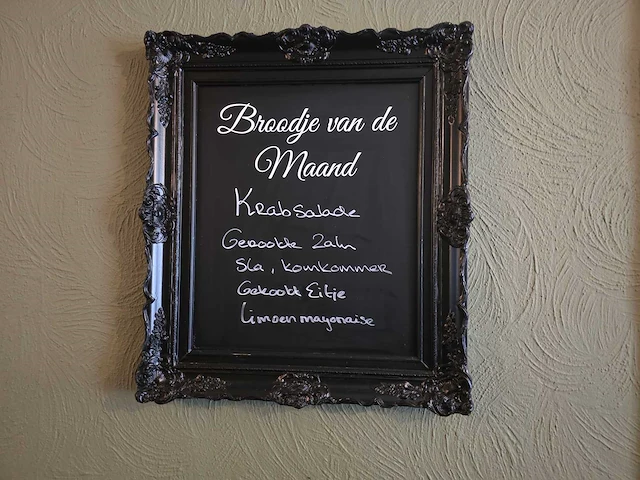 Broodje van de
Maand
Krabsalade
Gerookte Zalm
Sla, komkommer
Gekookt Eitje
Limoenmayonaise